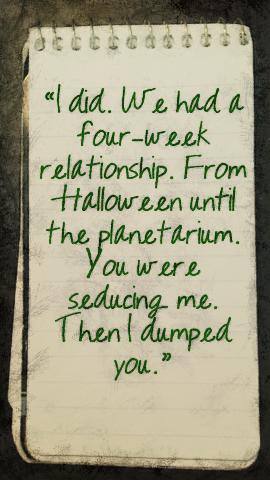 “I did. We had a
four-week
relationship. From
Halloween until
the planetarium.
You were
seducing me.
Then I dumped
you.”